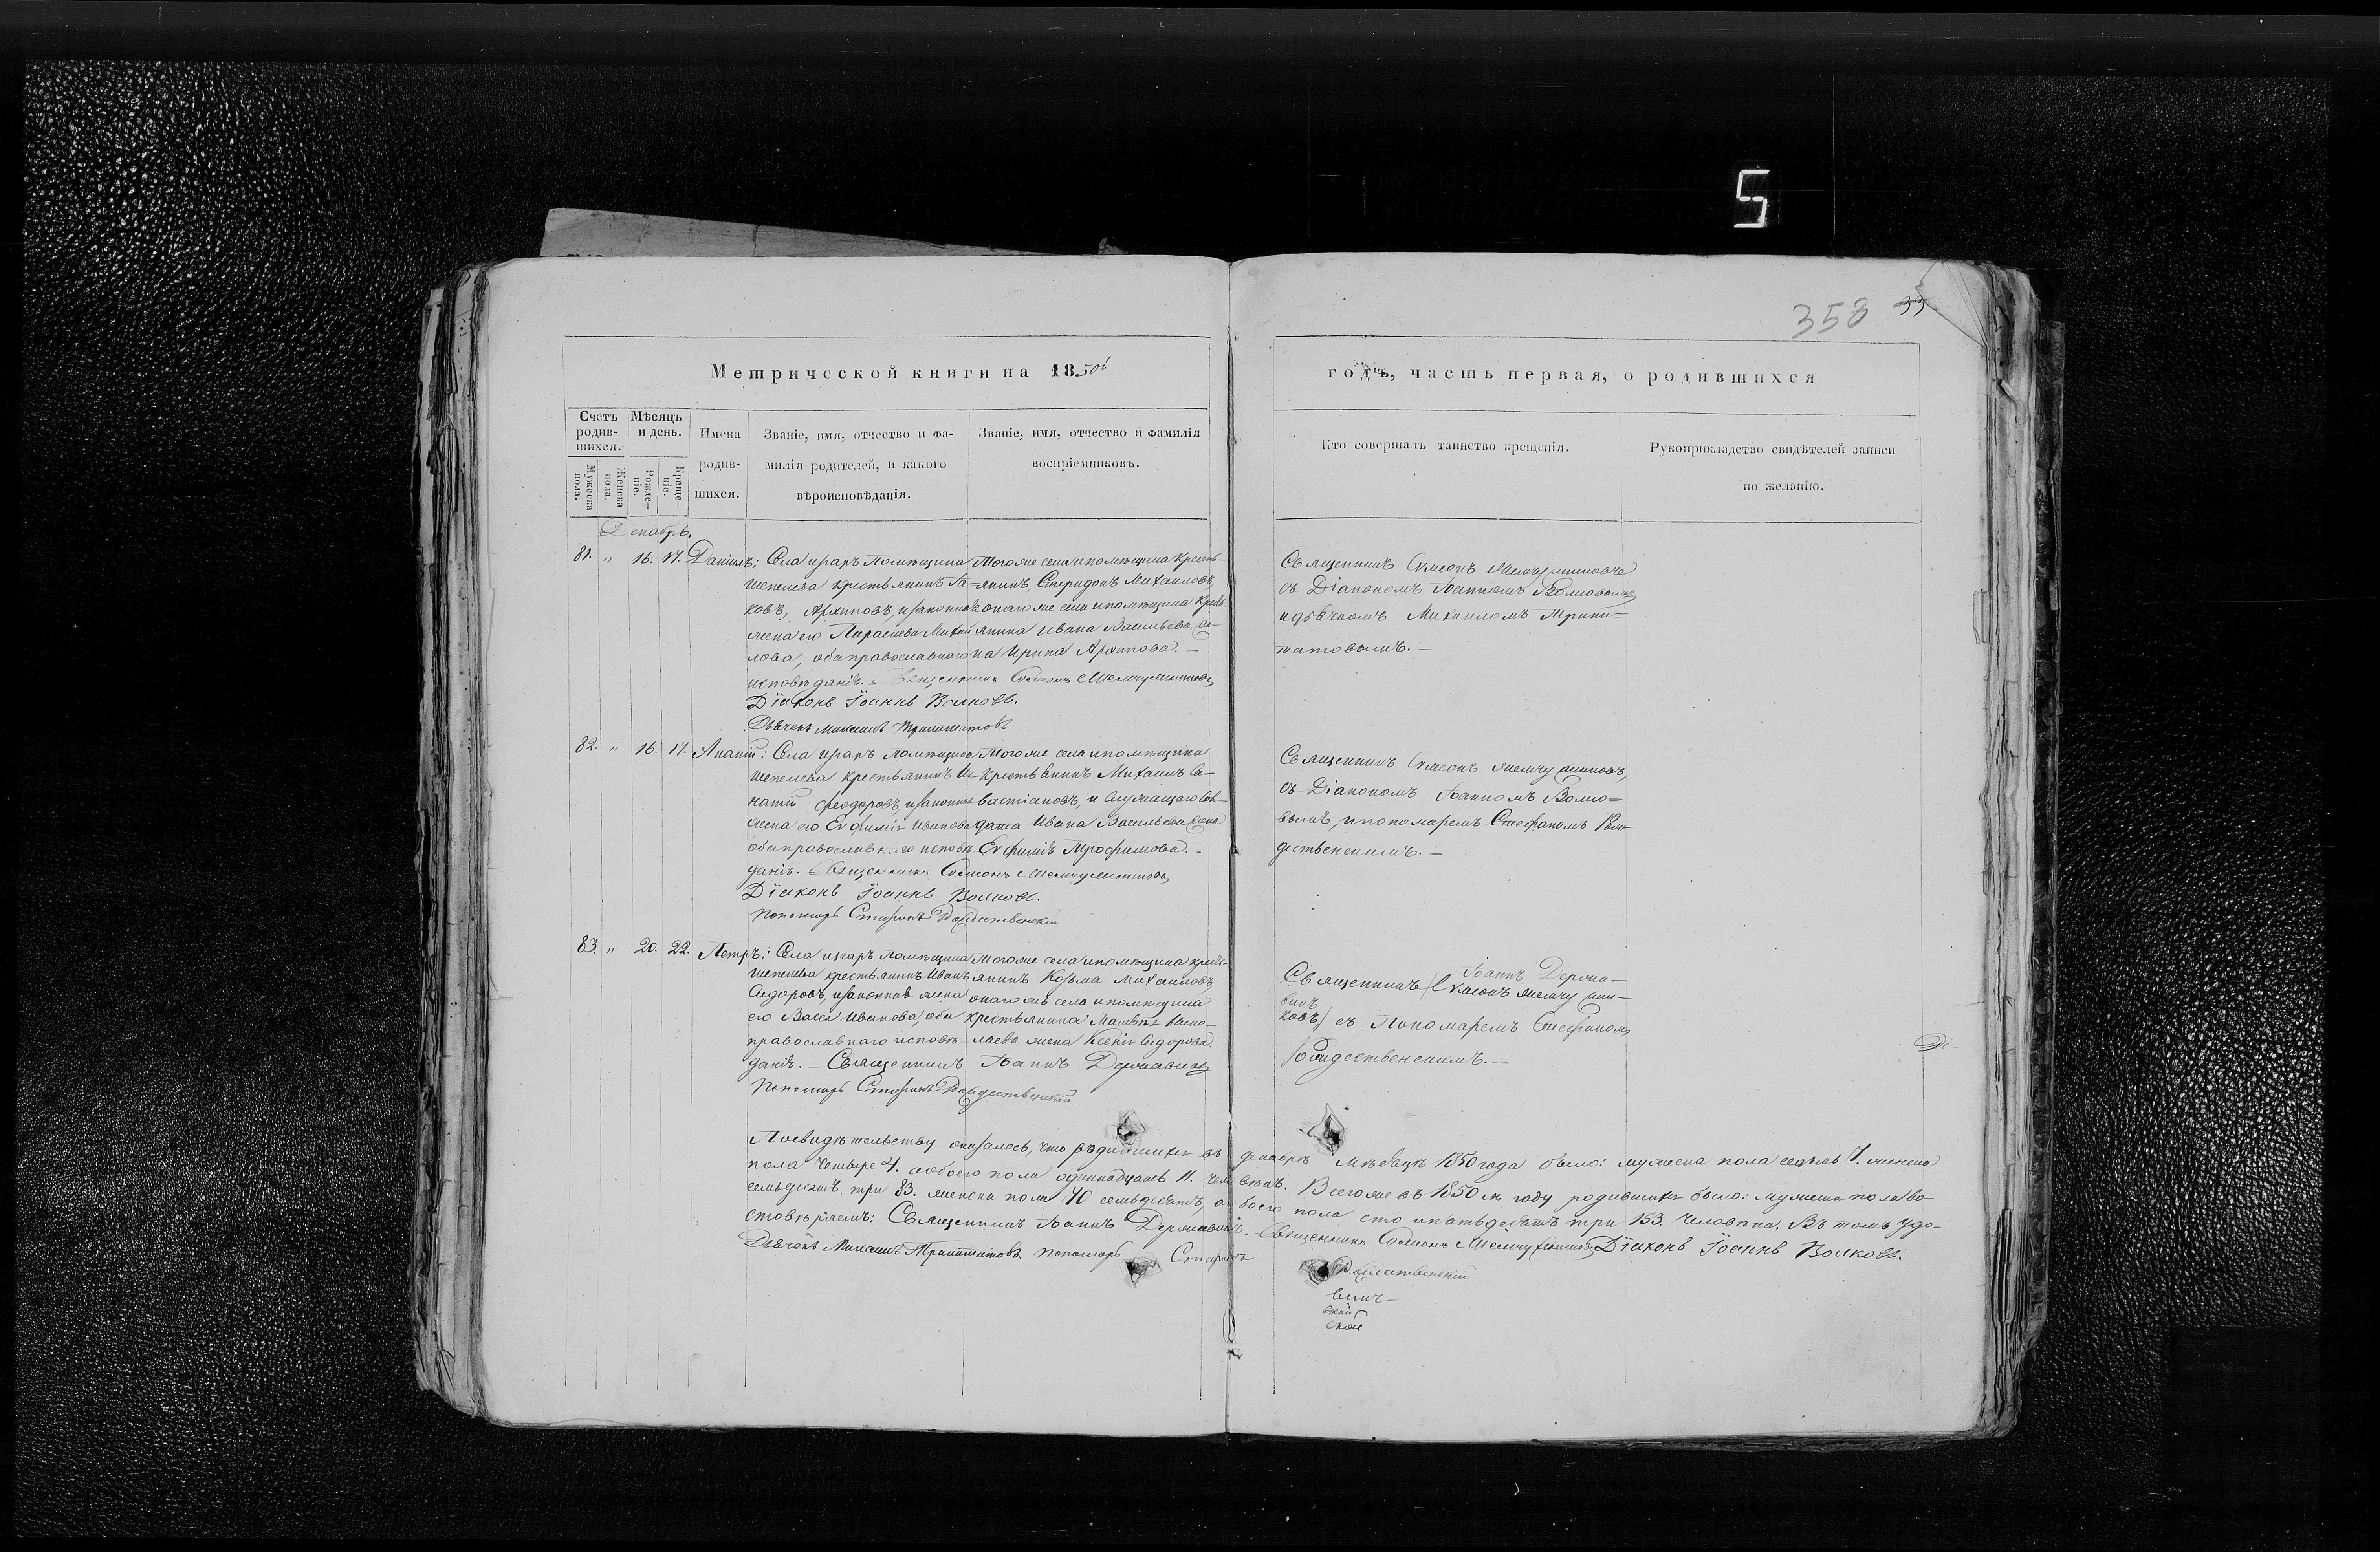 5
358 33
Метрической книги на 1850й
годъ, часть первая, о родившихся
Счетъ родив-шихся.
Мужеска пола.
Женска пола.
Мѣсяцъ и день.
Рожде-ніе.
Креще-ніе.
Имена родив-шихся.
Званіе, имя, отчество и фа-
милія родителей, и какого
вѣроисповѣданія.
Званіе, имя, отчество и фамилія
воспріемниковъ.
Кто совершалъ таинство крещенія.
Рукоприкладство свидѣтелей записи
по желанію.
Декабрь.
81. „ 16. 17. Даніилъ;
Села Изгаръ помѣщика
Шепелева крестьянинъ Іа-
ковъ Архиповъ, и законная
жена его Параскева Михаи
лова, оба православнаго
исповѣданія. – Священникъ
Діаконъ Іоаннъ Волковъ.
Дьячекъ Михаилъ
Тогоже села и помѣщика кресть-
янинъ Спиридонъ Михаиловъ,
и онагоже села и помѣщика кресть-
янина Ивана Васильева же-
на Ирина Архипова. –
Священникъ
съ Діакономъ Іоанномъ Волковымъ
и дьячкомъ Михаиломъ
82. „ 16. 17. Ананій:
Села Изгаръ помѣщика
Шепелева крестьянинъ Иг-
натій Феодоровъ, и законная
жена его Евфимія Иванова
оба православнаго исповѣ
данія. Священникъ
Діаконъ Іоаннъ Волковъ.
Пономарь Стефанъ Рождественскій
Тогоже села и помѣщика
крестьянинъ Михаилъ Са-
вастіановъ, и служащаго сол-
дата Ивана Васильева жена
Евфимія Трофимова. –
Священникъ
съ Діакономъ Іоанномъ Волко-
вымъ, и пономаремъ Стефаномъ Рож-
дественскимъ. –
83. „ 20. 22. Петръ;
Села Изгаръ помѣщика
Шепелева крестьянинъ Иванъ
Сидоровъ, и законная жена
его Васса Иванова, оба
православнаго исповѣ-
данія. – Священникъ Іоаннъ Державинъ
Пономарь Стефанъ Рождественскій
Тогоже села и помѣщика кресть-
янинъ Козьма Михаиловъ,
онагоже села и помѣщика
крестьянина Матвея
лаева жена Ксенія Сидорова.
Іоаннъ Держа-
Священникъ
винъ
съ Пономаремъ Стефаномъ
Рождественскимъ. –
По свидѣтельству оказалось, что родившихся въ декабрѣ мѣсяцѣ 1850 года было: мужеска пола семь 7. женска
пола четыре 4. а обоего пола одиннадцать 11. человѣкъ. Всегоже въ 1850м году родившихся было: мужеска пола во-
семьдесятъ три 83. женска пола 70 семьдесятъ, а обоего пола сто пятьдесятъ три 153. человѣка. Въ томъ удо-
стовѣряемъ: Священникъ Іоаннъ Державинъ. – Священникъ Діаконъ Іоаннъ Волковъ.
Дьячекъ Михаилъ Пономарь Стефанъ
Рождественскій
винъ –
ской